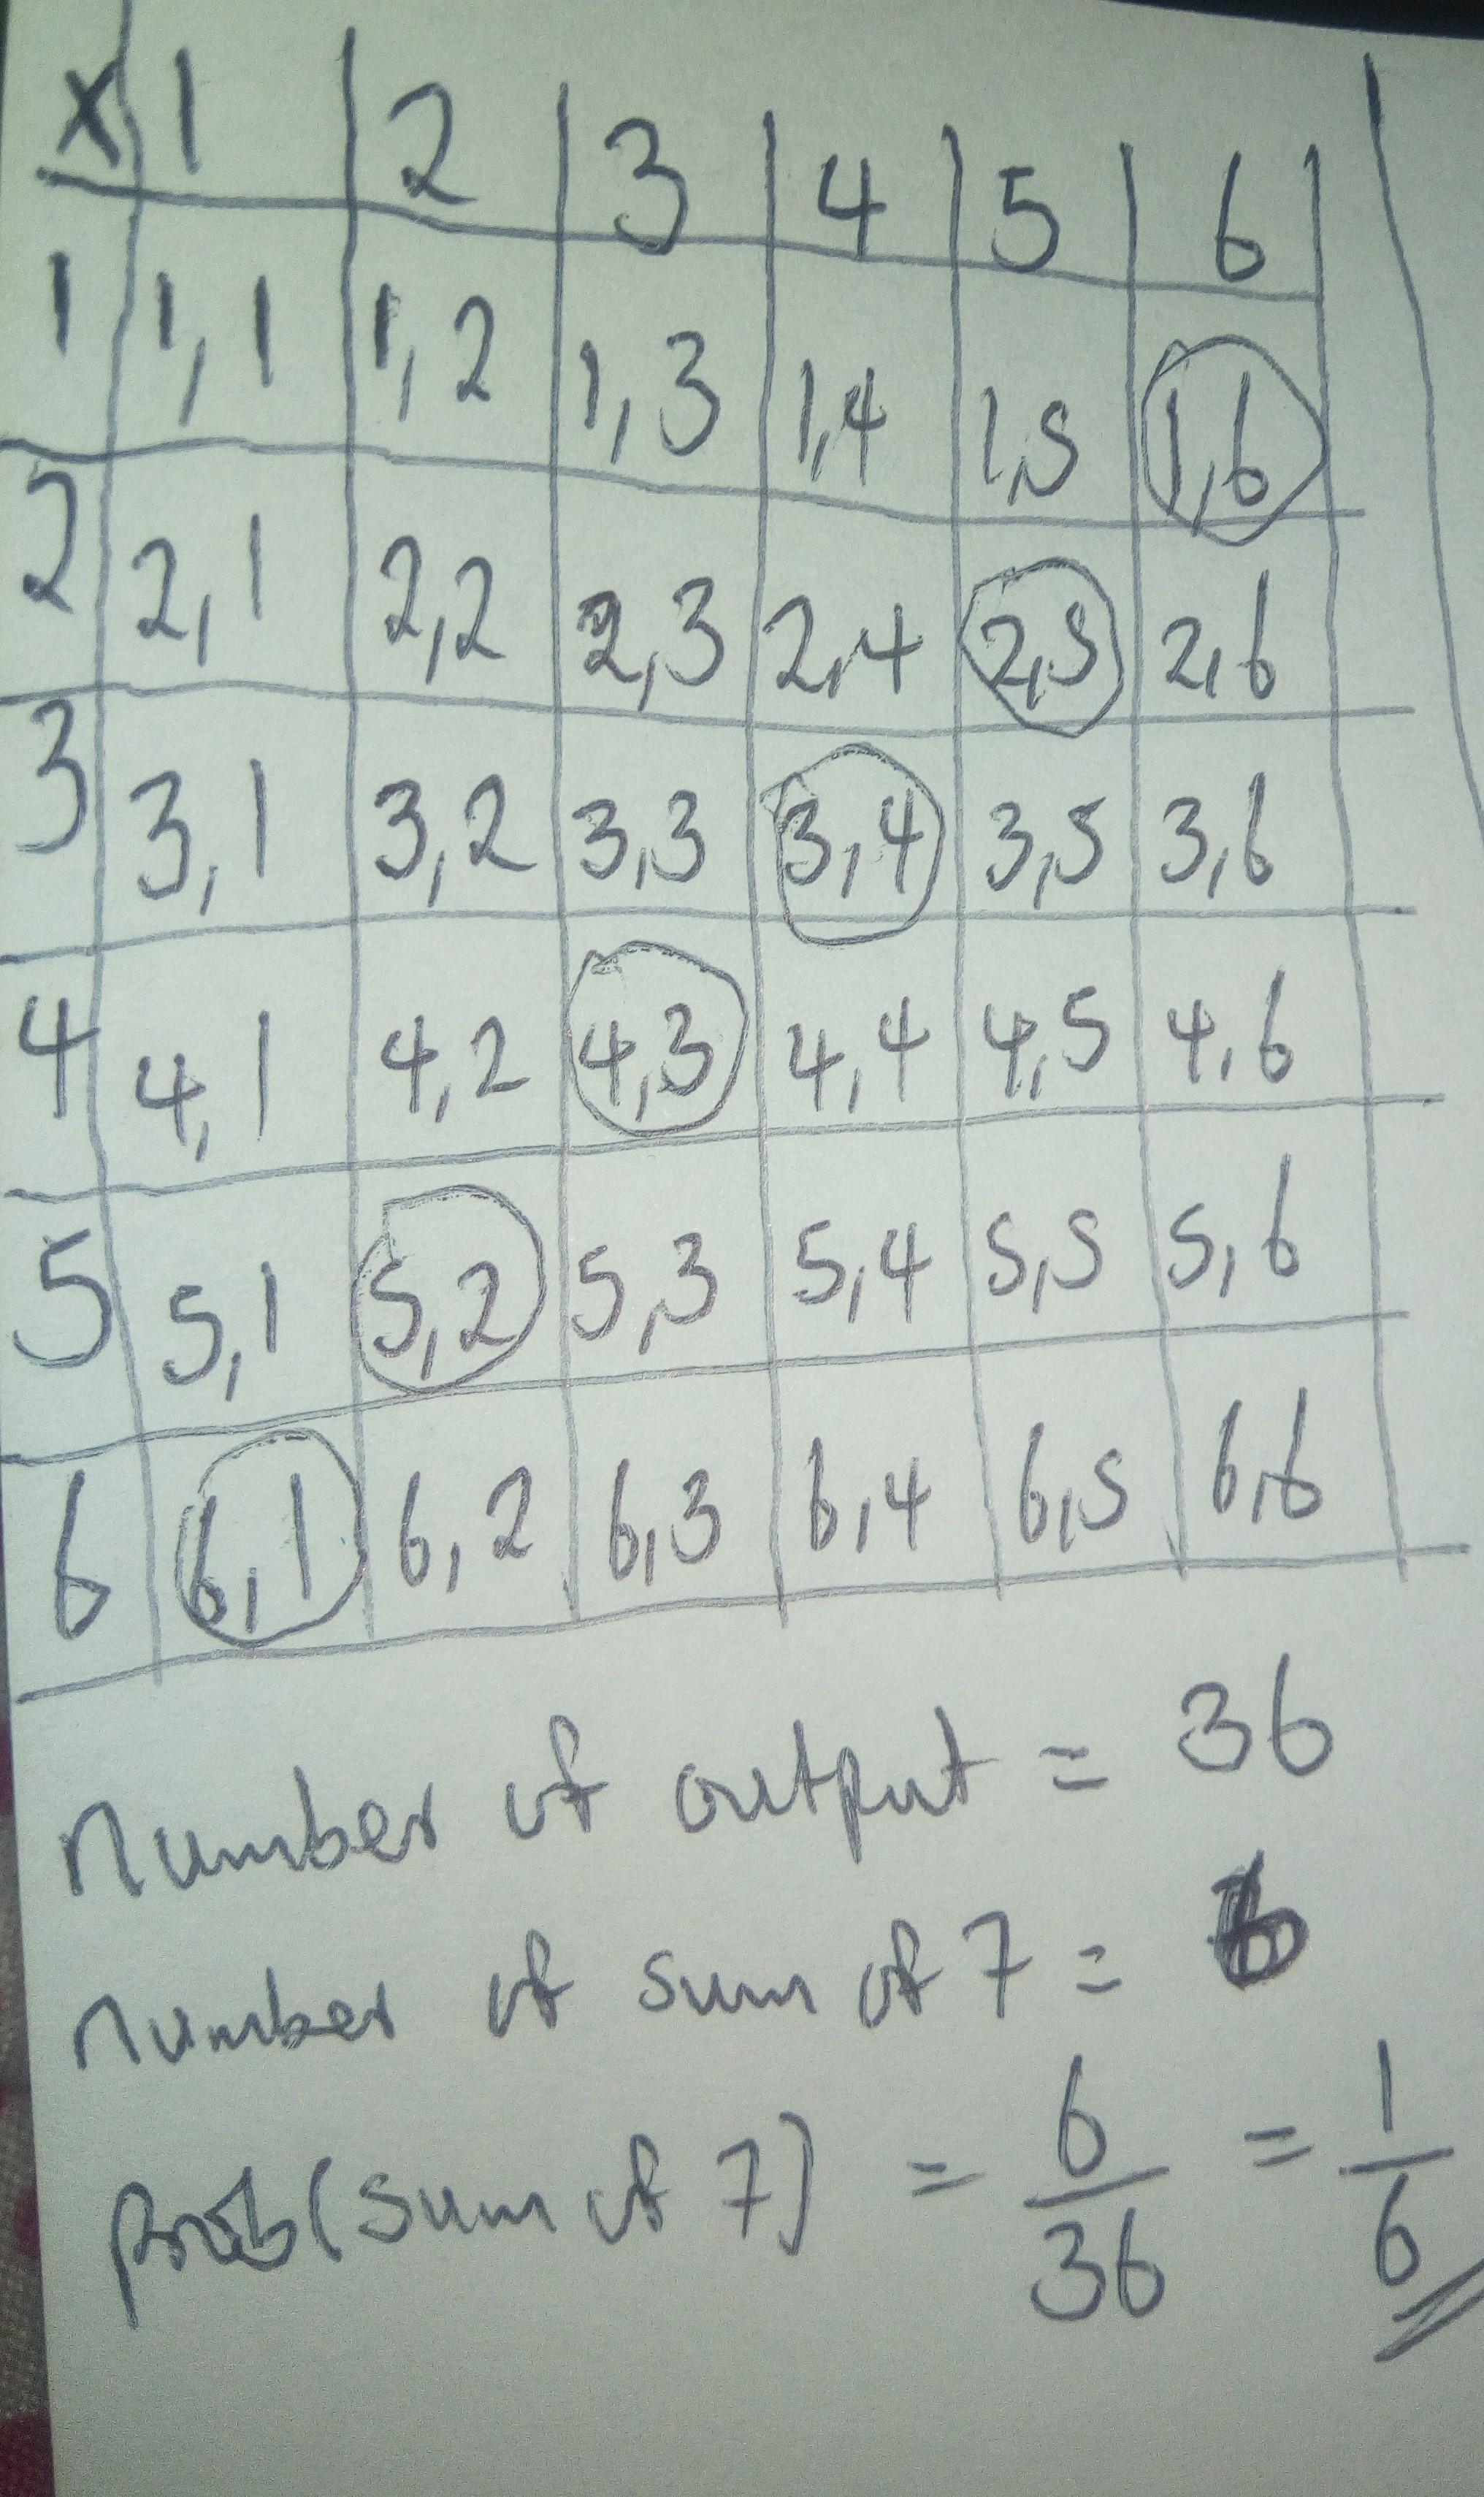 x 1 2 3 4 5 6
1 1,1 1,2 1,3 1,4 1,5 1,6
2 2,1 2,2 2,3 2,4 2,5 2,6
3 3,1 3,2 3,3 3,4 3,5 3,6
4 4,1 4,2 4,3 4,4 4,5 4,6
5 5,1 5,2 5,3 5,4 5,5 5,6
6 6,1 6,2 6,3 6,4 6,5 6,6
number of output = 36
number of sum of 7 = 6
prob(sum of 7) = 6/36 = 1/6